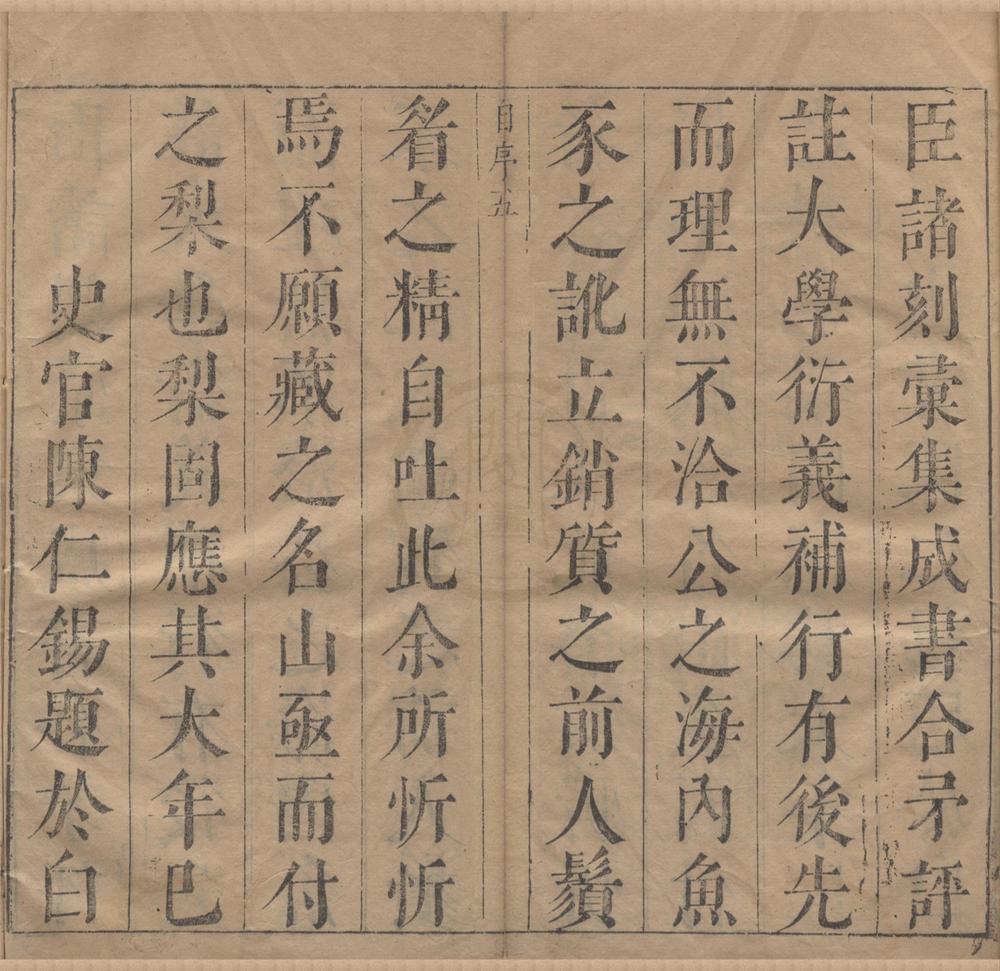 臣諸刻彙集成書合矛評
註大學衍義補行有後先
而理無不洽公之海內魚
豕之訛立銷質之前人鬚
自序 五
睂之精自吐此余所忻忻
焉不願藏之名山亟而付
之梨也梨固應其大年巳
史官陳仁錫題於白